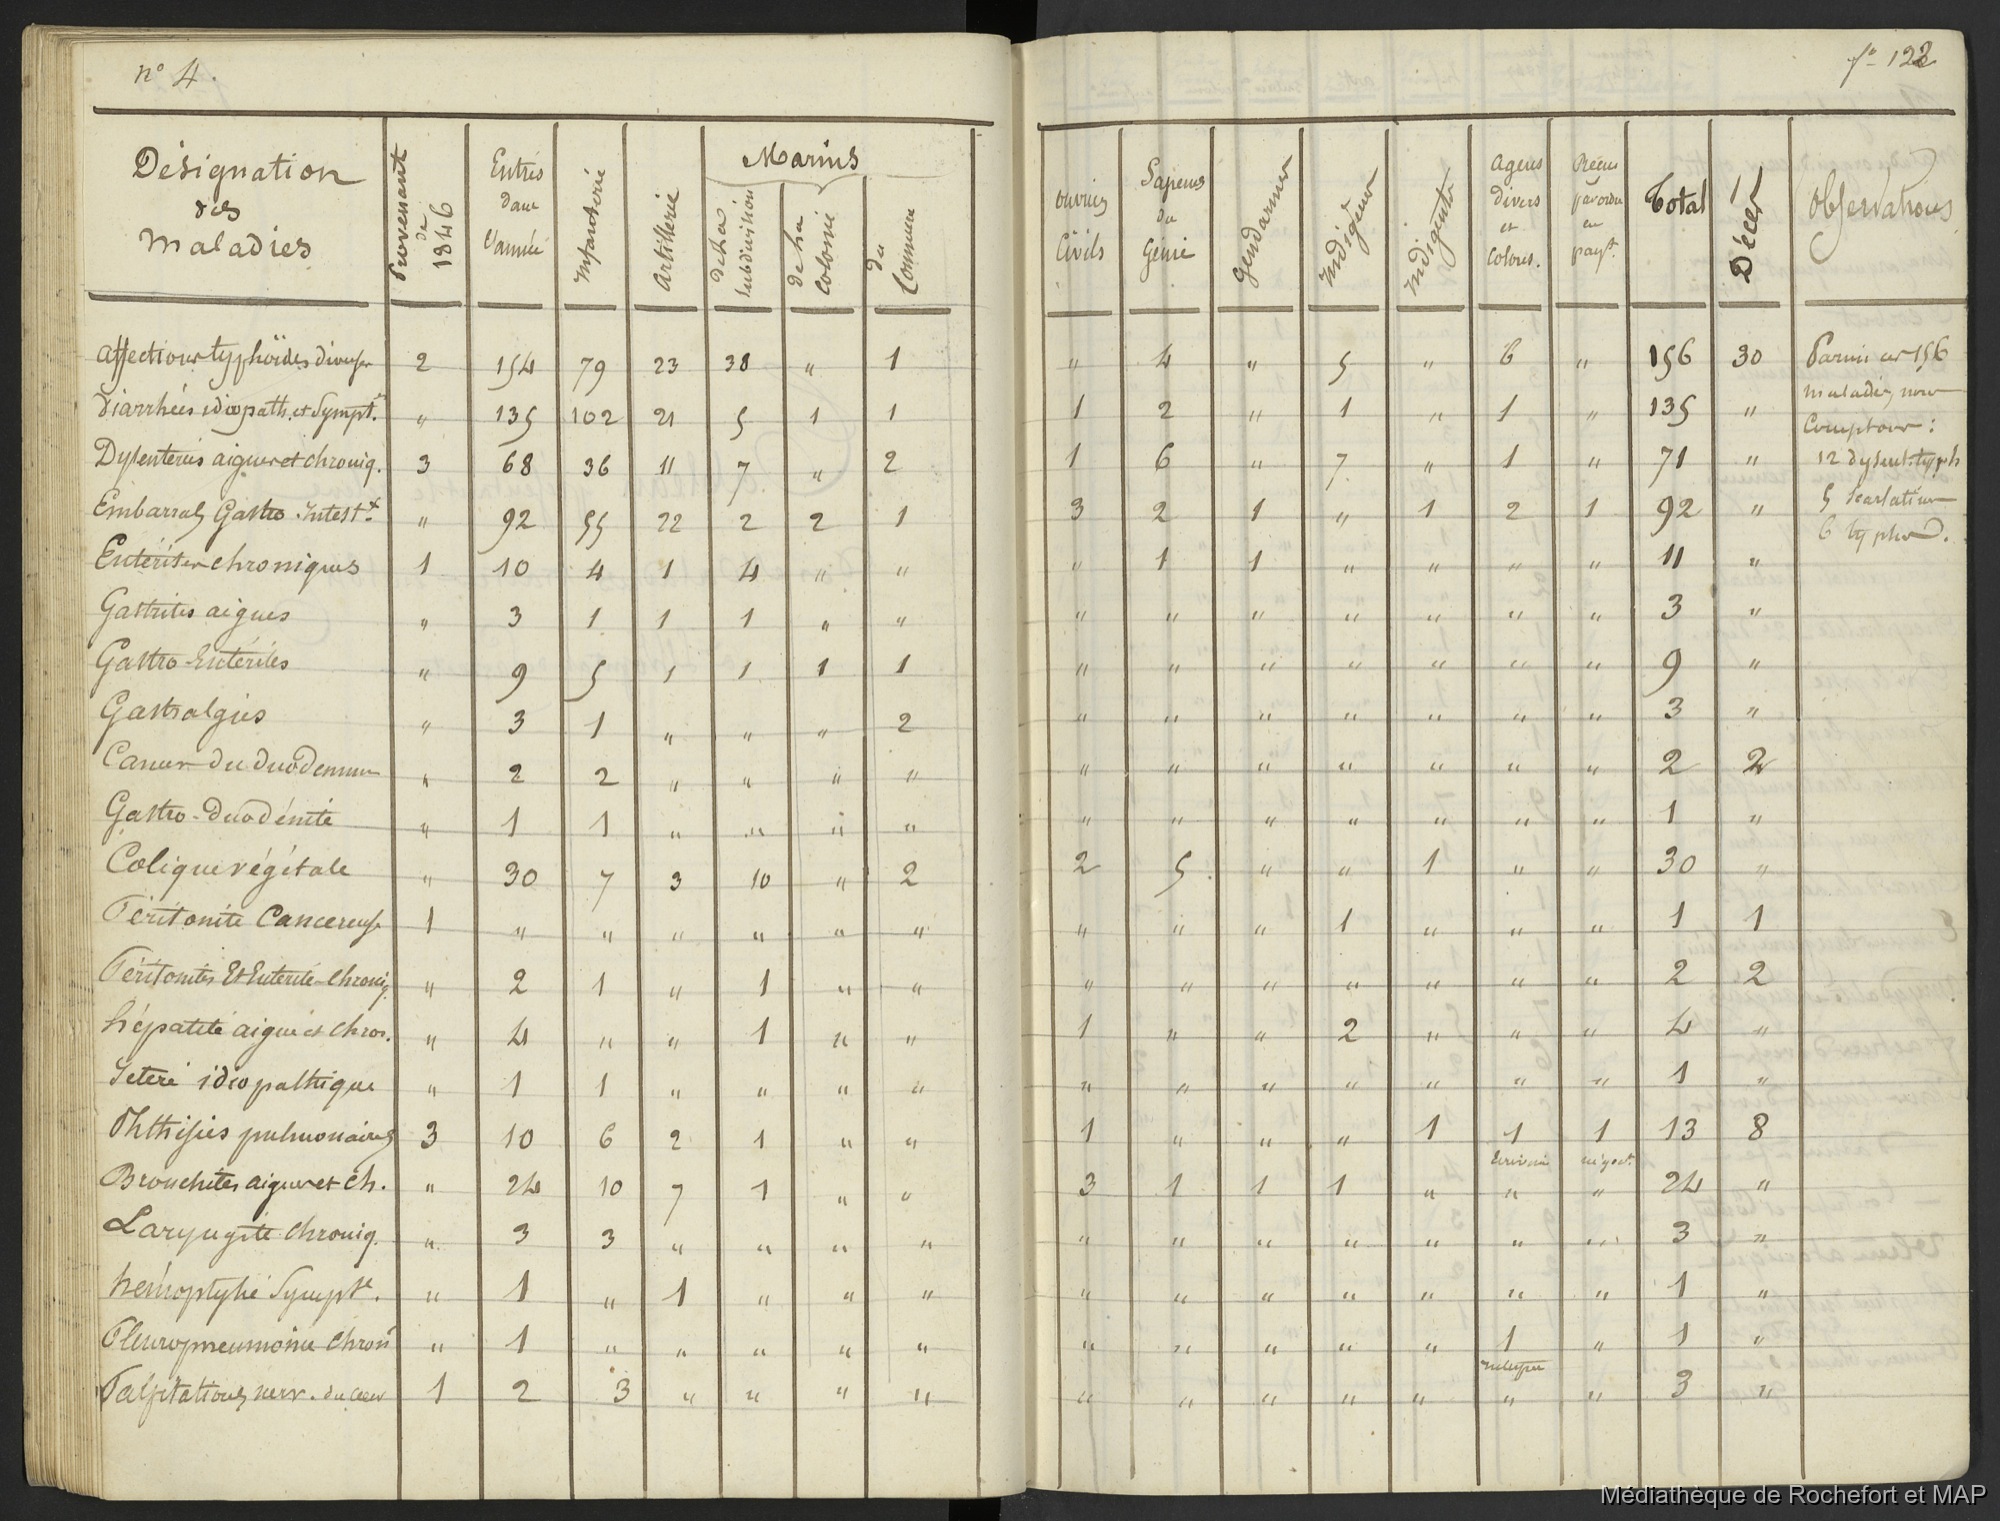 n° 4.
f° 122
Désignation des Maladies | Provenant de 1846 | Entrés dans l'année | Infanterie | Artillerie | Marins | de la subdivision | de la Colonie | du Commerce | ouvriers Civils | Sapeurs du Génie | Gendarmes | Indigènes | Indigents | Agens divers et Colons. | en payt. | Total | Décès | Observations
Affections typhoïdes diverses | 2 | 154 | 79 | 23 | 38 | " | 1 | " | 4 | " | 5 | " | 6 | " | 156 | 30 | Parmi ces 156
Diarrhées idiopath. et Sympt. | " | 135 | 102 | 21 | 5 | 1 | 1 | 1 | 2 | " | 1 | " | 1 | " | 135 | " | maladies nous Comptons :
Dysenteries aigues et chroniq. | 3 | 68 | 36 | 11 | 7 | " | 2 | 1 | 6 | " | 7 | " | 1 | " | 71 | " | 12 dysent. typh
Embarras Gastro-Intest.x | " | 92 | 55 | 22 | 2 | 2 | 1 | 3 | 2 | 1 | " | 1 | 2 | 1 | 92 | " | 5 Scarlatines 6 typhoïd.
Entérites chroniques | 1 | 10 | 4 | 1 | 4 | " | " | " | 1 | 1 | " | " | " | " | 11 | "
Gastrites aigues | " | 3 | 1 | 1 | 1 | " | " | " | " | " | " | " | " | " | 3 | "
Gastro-Entérites | " | 9 | 5 | 1 | 1 | 1 | 1 | " | " | " | " | " | " | " | 9 | "
Gastralgies | " | 3 | 1 | " | " | " | 2 | " | " | " | " | " | " | " | 3 | "
Cancer du duodenum | " | 2 | 2 | " | " | " | " | " | " | " | " | " | " | " | 2 | 2
Gastro-Duodénite | " | 1 | 1 | " | " | " | " | " | " | " | " | " | " | " | 1 | "
Colique végétale | " | 30 | 7 | 3 | 10 | " | 2 | 2 | 5 | " | " | 1 | " | " | 30 | "
Péritonite Cancereuse | 1 | " | " | " | " | " | " | " | " | " | 1 | " | " | " | 1 | 1
Péritonites Et Entérite Chroniq. | " | 2 | 1 | " | 1 | " | " | " | " | " | " | " | " | " | 2 | 2
hépatite aigue et chron. | " | 4 | " | " | 1 | " | " | 1 | " | " | 2 | " | " | " | 4 | "
Ictère idiopathique | " | 1 | 1 | " | " | " | " | " | " | " | " | " | " | " | 1 | "
Phthisies pulmonaires | 3 | 10 | 6 | 2 | 1 | " | " | 1 | " | " | " | 1 | 1 | 1 | 13 | 8
Ecrivain | négoct.
Bronchites aigues et ch. | " | 24 | 10 | 7 | 1 | " | " | 3 | 1 | 1 | 1 | " | " | " | 24 | "
Laryngite Chroniq. | " | 3 | 3 | " | " | " | " | " | " | " | " | " | " | " | 3 | "
hémoptysie Sympte. | " | 1 | " | 1 | " | " | " | " | " | " | " | " | " | " | 1 | "
Pleuropneumonie Chron | " | 1 | " | " | " | " | " | " | " | " | " | " | 1 | " | 1 | "
Palpitations nerv. du Cœur | 1 | 2 | 3 | " | " | " | " | " | " | " | " | " | " | " | 3 | "
Médiathèque de Rochefort et MAP